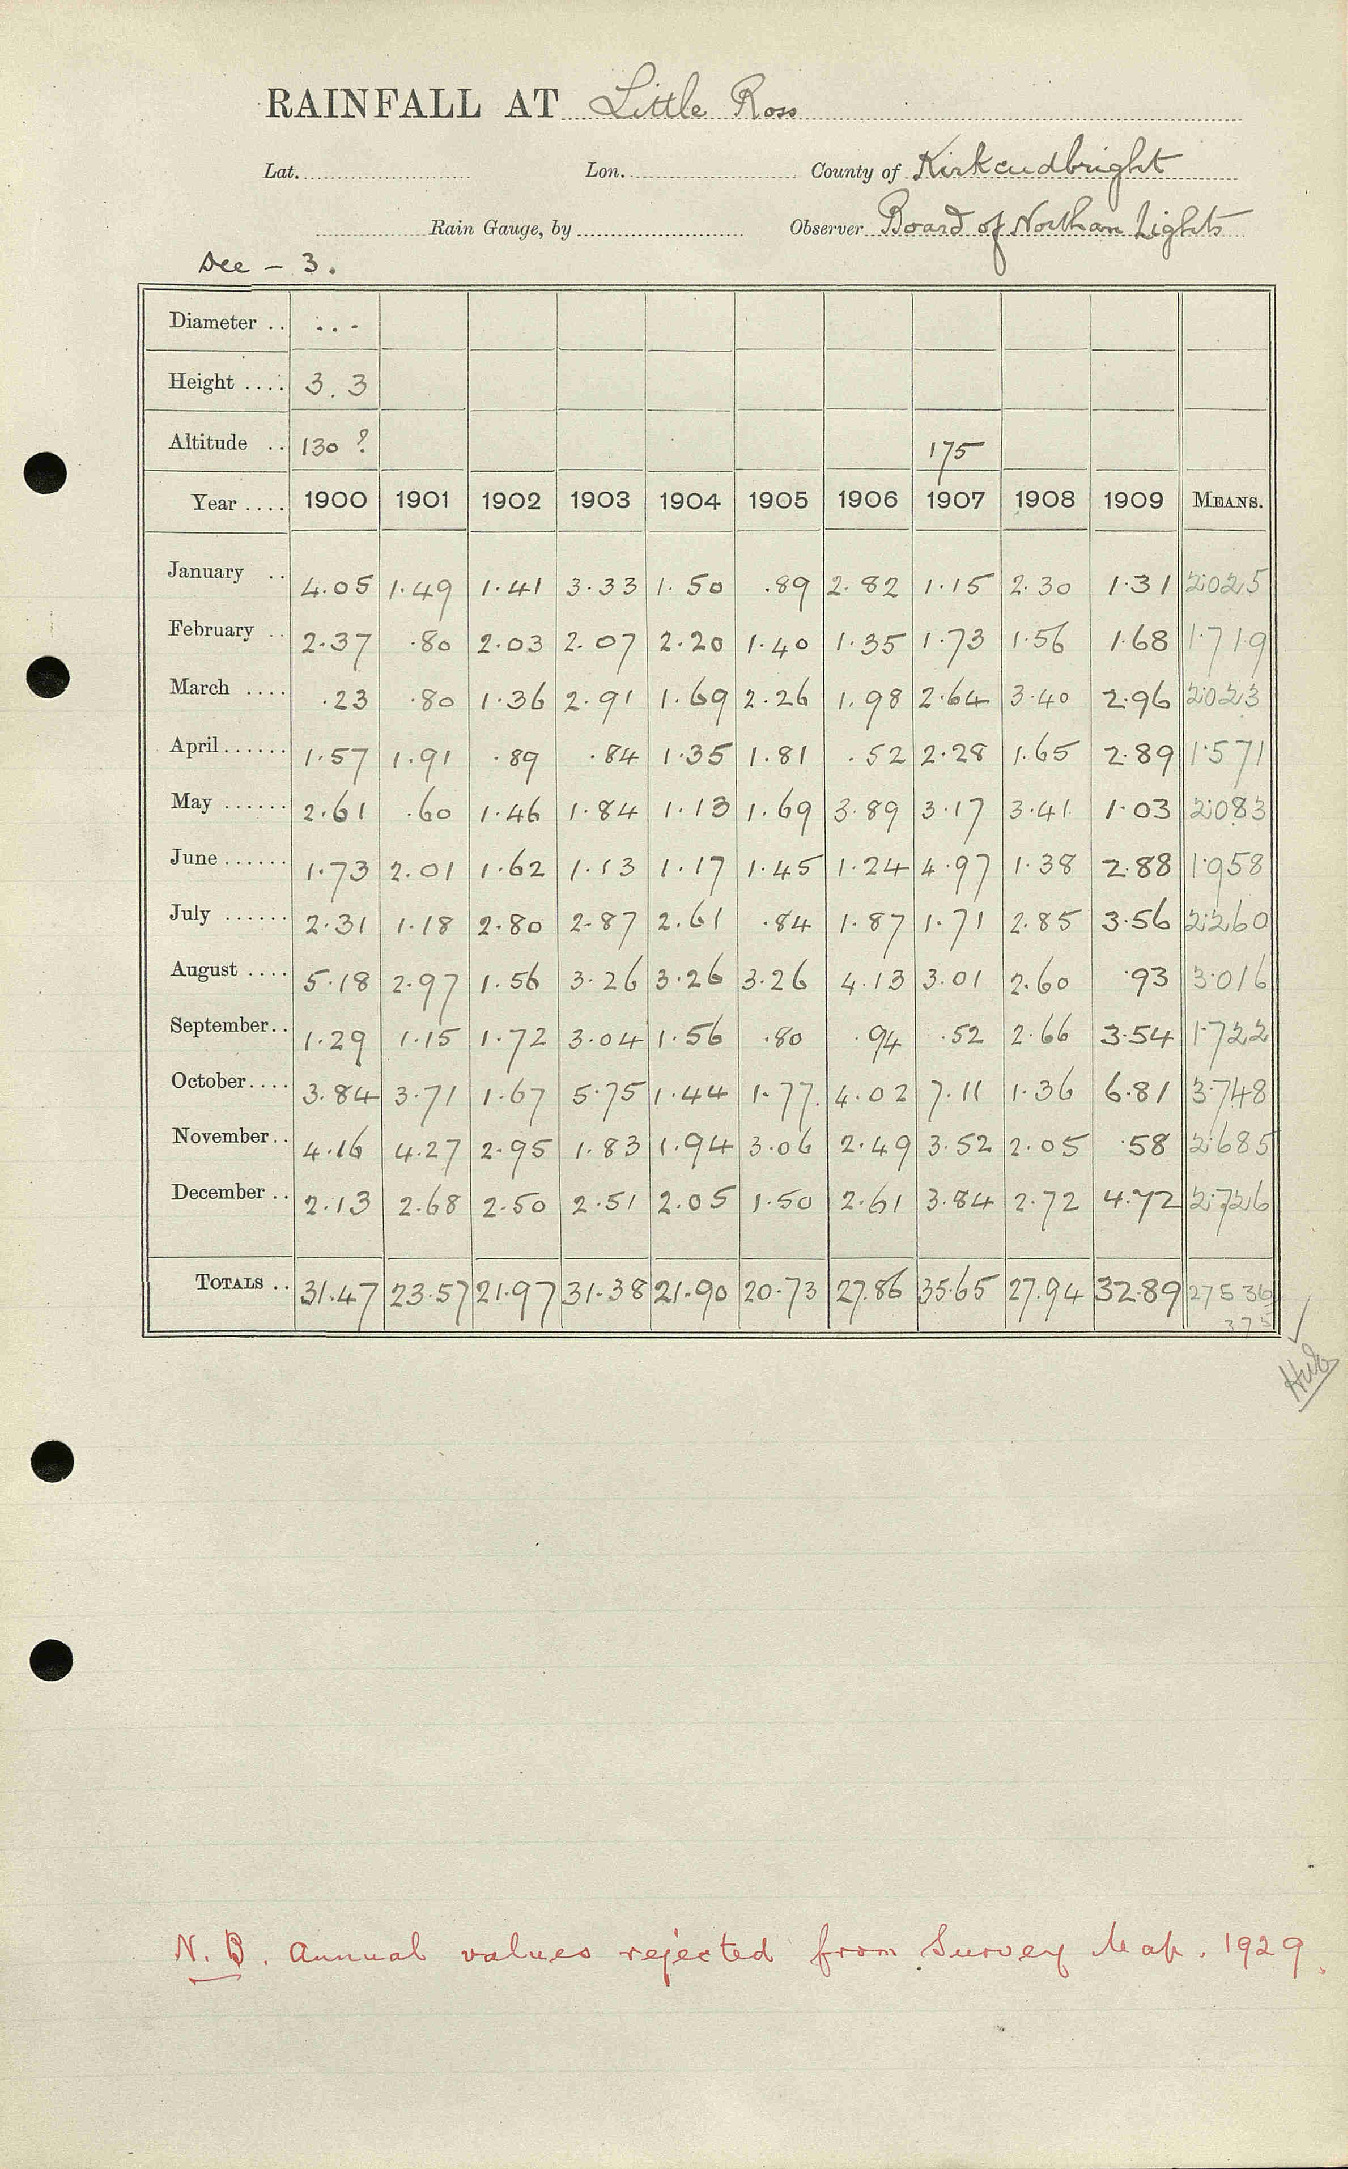 RAINFALL AT Little Ross
Lat. Lon. County of Kirkcudbright
Rain Gauge, by Observer Board of Northern Lights
Dee - 3.
Diameter .. ...
Height .... 3.3
Altitude .. 130 ? 175
Year .... 1900 1901 1902 1903 1904 1905 1906 1907 1908 1909 MEANS.
January .. 4.05 1.49 1.41 3.33 1.50 .89 2.82 1.15 2.30 1.31 2.025
February .. 2.37 .80 2.03 2.07 2.20 1.40 1.35 1.73 1.56 1.68 1.719
March .... .23 .80 1.36 2.91 1.69 2.26 1.98 2.64 3.40 2.96 2.023
April ...... 1.57 1.91 .89 .84 1.35 1.81 .52 2.28 1.65 2.89 1.571
May ...... 2.61 .60 1.46 1.84 1.13 1.69 3.89 3.17 3.41 1.03 2.083
June ...... 1.73 2.01 1.62 1.13 1.17 1.45 1.24 4.97 1.38 2.88 1.958
July ...... 2.31 1.18 2.80 2.87 2.61 .84 1.87 1.71 2.85 3.56 2.260
August .... 5.18 2.97 1.56 3.26 3.26 3.26 4.13 3.01 2.60 .93 3.016
September .. 1.29 1.15 1.72 3.04 1.56 .80 .94 .52 2.66 3.54 1.722
October .... 3.84 3.71 1.67 5.75 1.44 1.77 4.02 7.11 1.36 6.81 3.748
November .. 4.16 4.27 2.95 1.83 1.94 3.06 2.49 3.52 2.05 .58 2.685
December .. 2.13 2.68 2.50 2.51 2.05 1.50 2.61 3.84 2.72 4.72 2.726
TOTALS .. 31.47 23.57 21.97 31.38 21.90 20.73 27.86 35.65 27.94 32.89 27536
375
N.B. Annual values rejected from Survey Map. 1929.